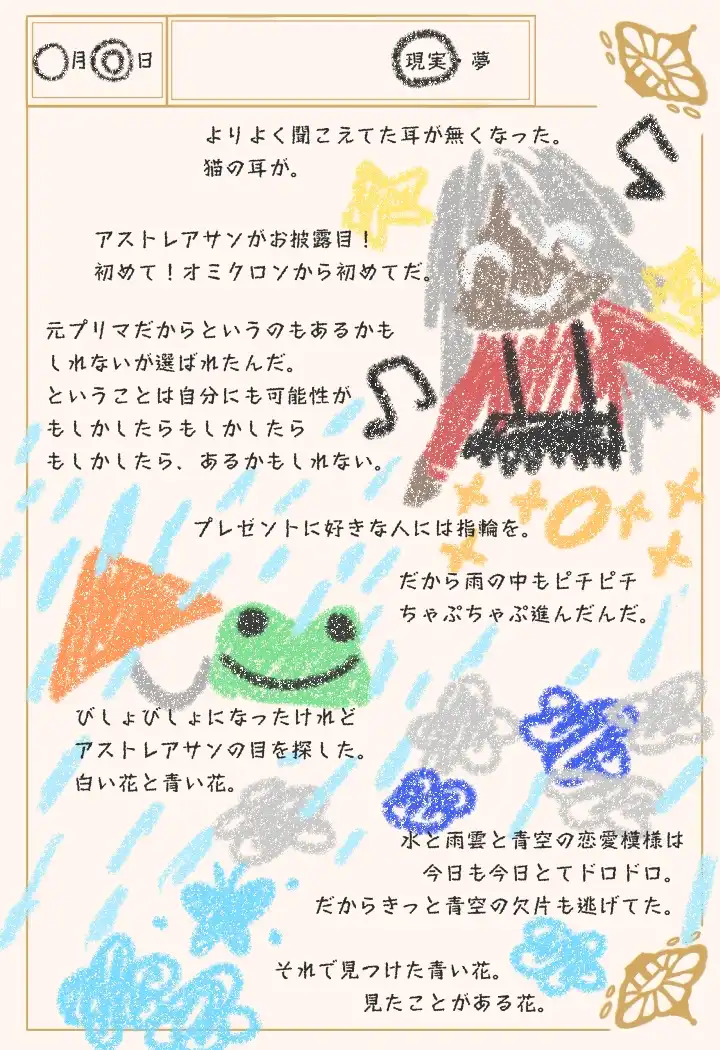 ○月◎日
現実・夢
よりよく聞こえてた耳が無くなった。
猫の耳が。
アストレアサンがお披露目！
初めて！オミクロンから初めてだ。
元プリマだからというのもあるかも
しれないが選ばれたんだ。
ということは自分にも可能性が
もしかしたらもしかしたら
もしかしたら、あるかもしれない。
プレゼントに好きな人には指輪を。
だから雨の中もピチピチ
ちゃぷちゃぷ進んだんだ。
びしょびしょになったけれど
アストレアサンの目を探した。
白い花と青い花。
水と雨雲と青空の恋愛模様は
今日も今日とてドロドロ。
だからきっと青空の欠片も逃げてた。
それで見つけた青い花。
見たことがある花。